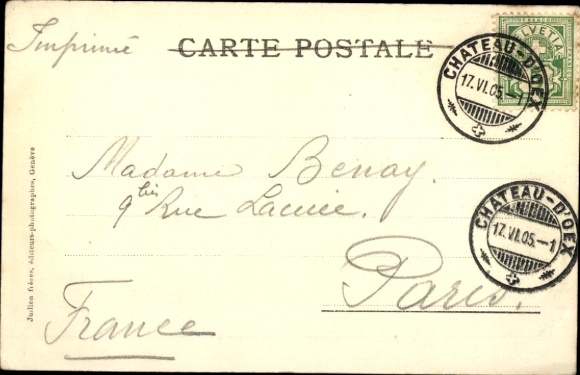 Imprimé
CARTE POSTALE
FRANCO
HELVETIA
CHATEAU-D'OEX
17.VI.05.-1
Madame Benay.
9 bis Rue Lacuée.
CHATEAU-D'OEX
17.VI.05.-1
Paris.
France
Jullien frères, éditeurs-photographes, Genève